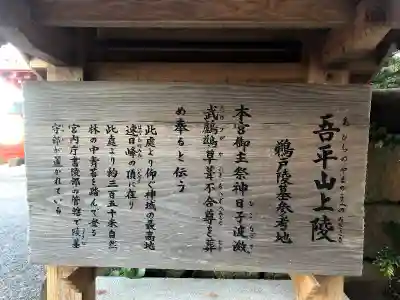 吾平山上陵
鵜戸陵墓参考地
本宮御主祭神日子波瀲
武鸕鷀草葺不合尊を葬
め奉ると伝う
此處より仰ぐ神域の最高地
速日峰の頂に在り
此處より約三百五十米自然
林の中青苔を踏んで登る
宮内庁書陵部の管轄で陵墓
守部が置かれている